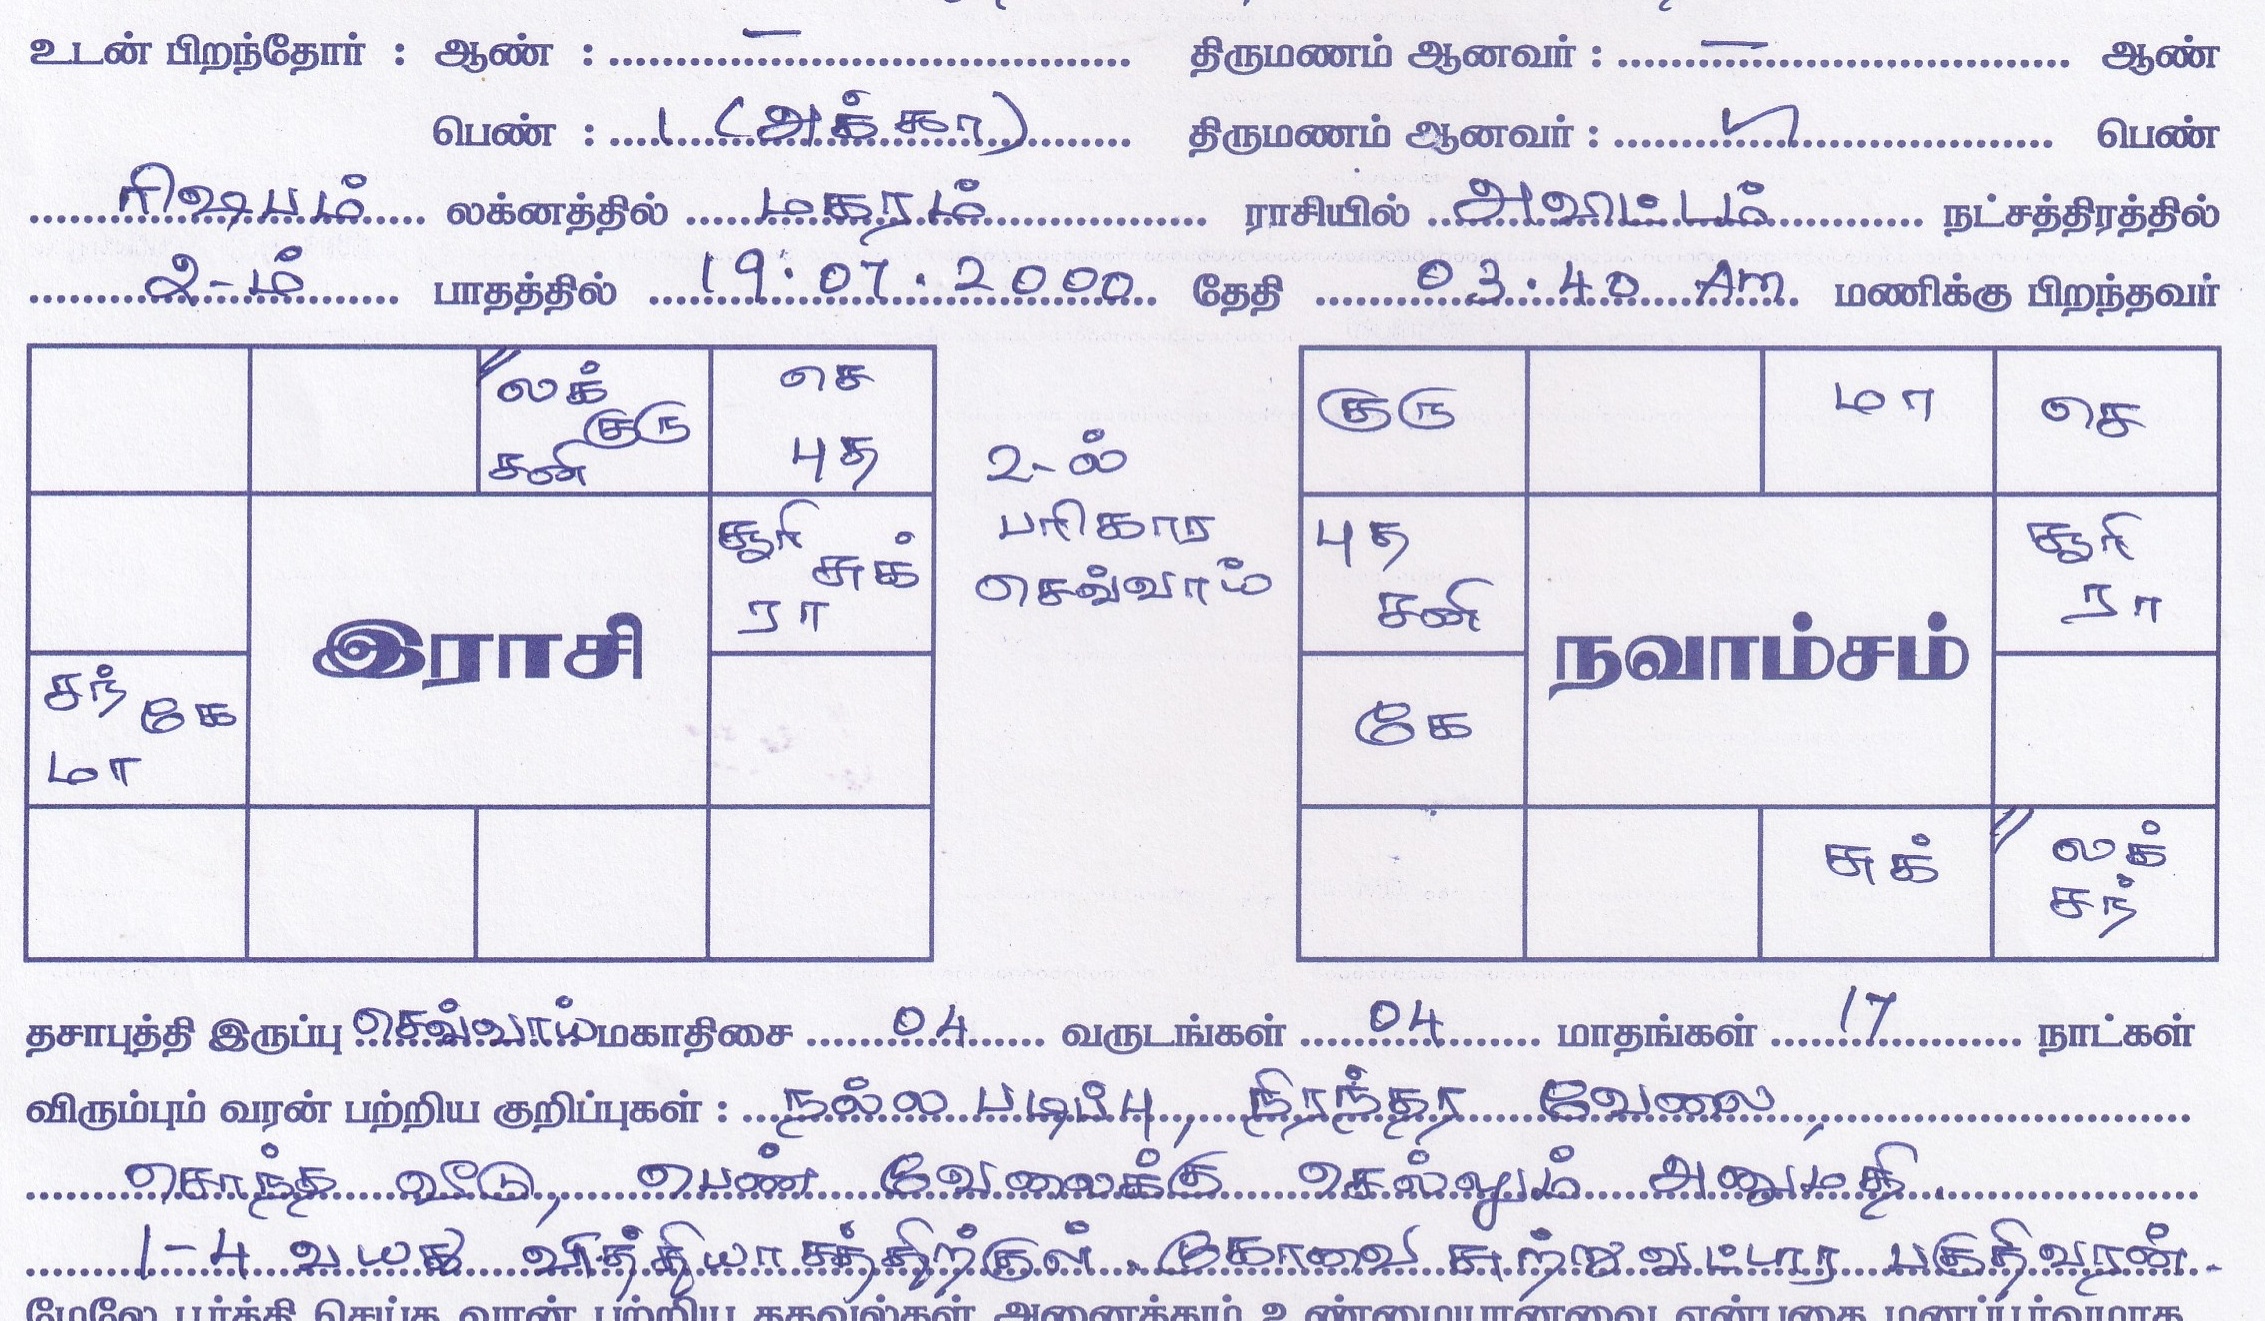 உடன் பிறந்தோர் : ஆண் : — திருமணம் ஆனவர் : — ஆண்
பெண் : 1 (அக்கா) திருமணம் ஆனவர் : பெண்
ரிஷபம் லக்னத்தில் மகரம் ராசியில் அவிட்டம் நட்சத்திரத்தில்
2-ம் பாதத்தில் 19.07.2000 தேதி 03.40 Am மணிக்கு பிறந்தவர்
லக் குரு சனி
செ புத
சூரி சுக் ரா
இராசி
சந் கே மா
2-ல்
பரிகார
செவ்வாய்
குரு
மா
செ
புத சனி
சூரி ரா
நவாம்சம்
கே
சுக்
லக் சந்
தசாபுத்தி இருப்பு செவ்வாய் மகாதிசை 04 வருடங்கள் 04 மாதங்கள் 17 நாட்கள்
விரும்பும் வரன் பற்றிய குறிப்புகள் : நல்ல படிப்பு, நிரந்தர வேலை,
சொந்த வீடு, பெண் வேலைக்கு செல்லும் அனுமதி.
1-4 வயது வித்தியாசத்திற்குள். கோவை சுற்றுவட்டார பகுதி வரன்.
மேலே பூர்த்தி செய்த வரன் பற்றிய தகவல்கள் அனைத்தும் உண்மையானவை என்பதை மனப்பூர்வமாக